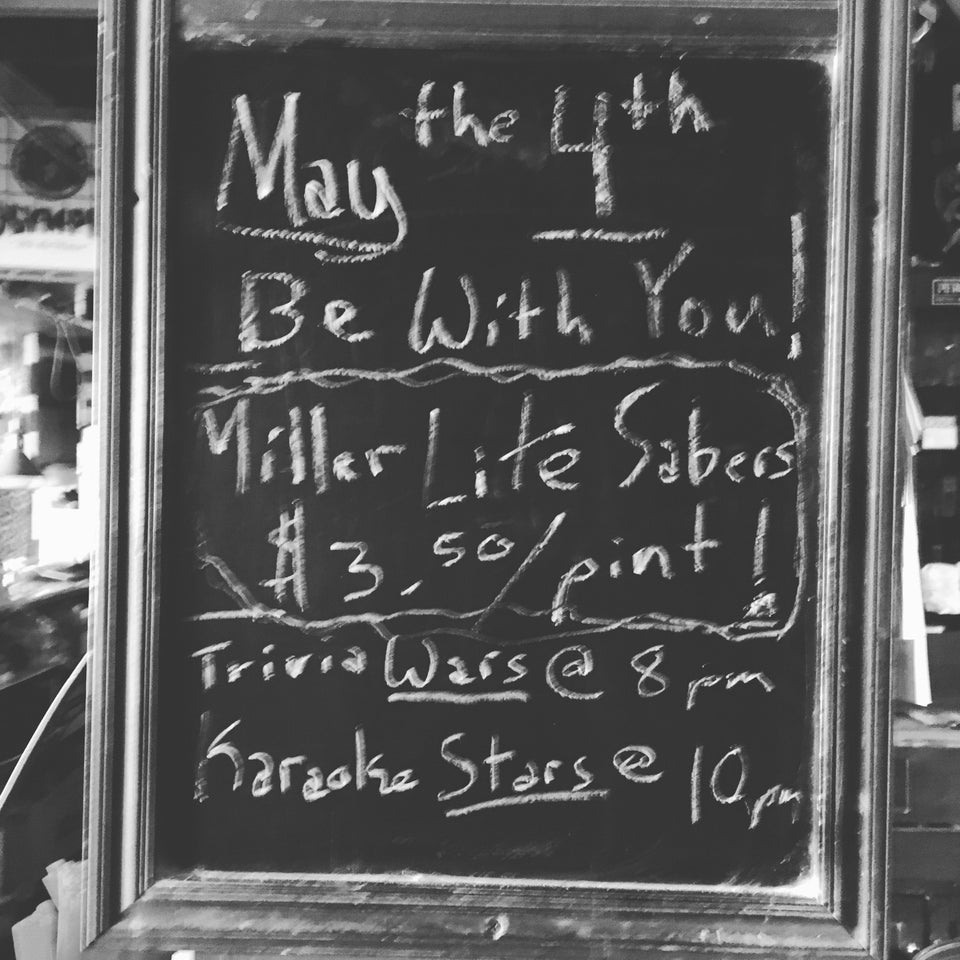 May the 4th
Be With You!
Miller Lite Sabers
$3.50/pint!
Trivia Wars @ 8 pm
Karaoke Stars @ 10pm